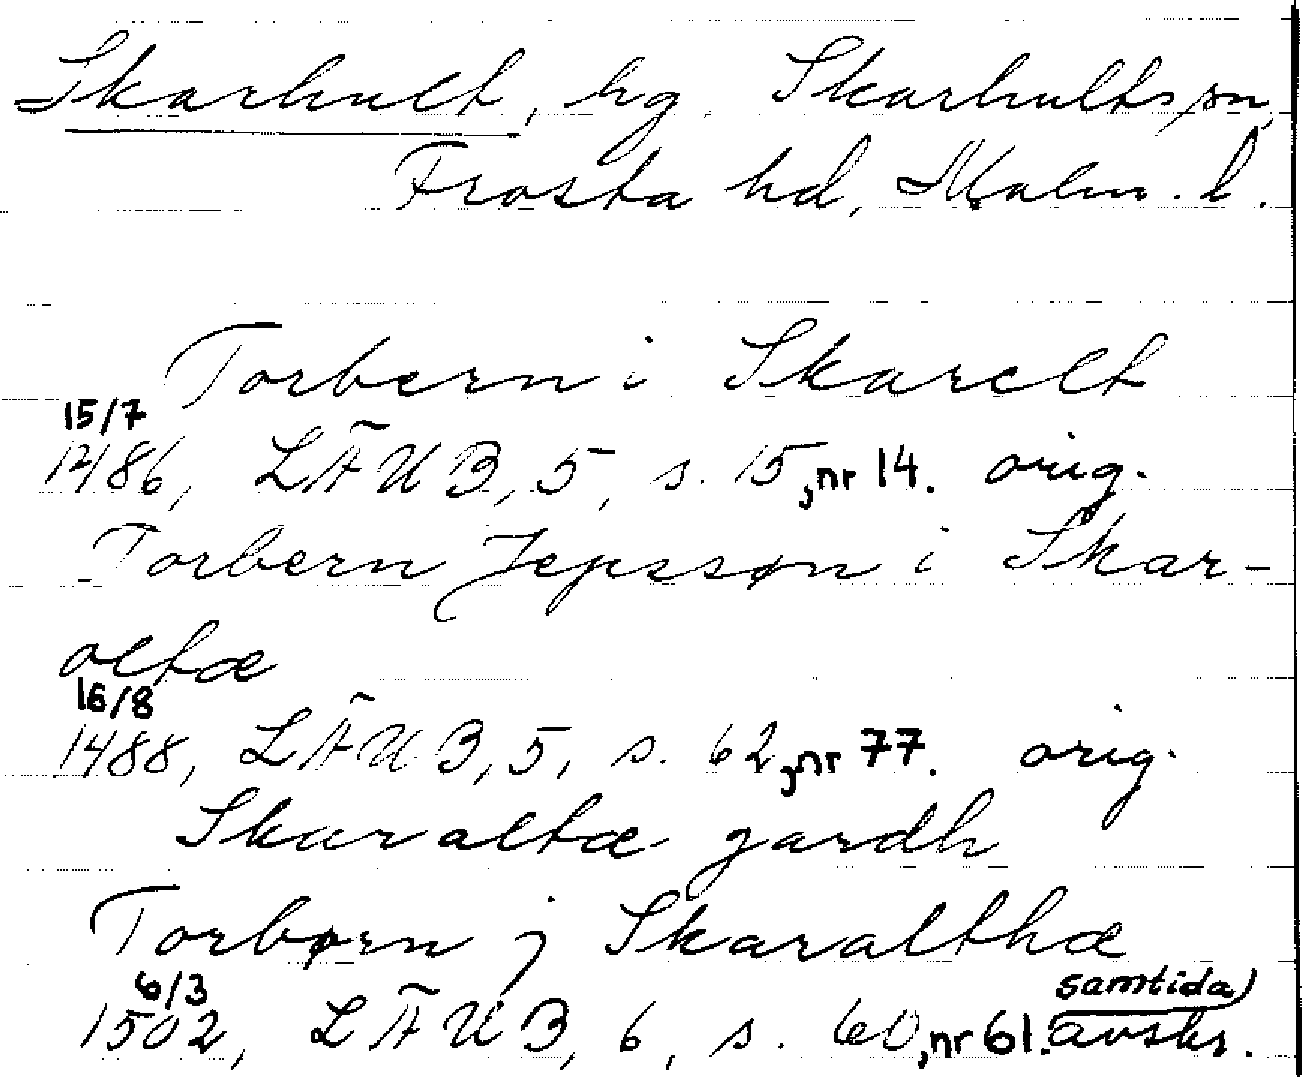 Skarhult, hg, Skarhults sn,
Frosta hd, Malm. l.
Torbern i Skarelt
15/7
1486, LÄUB, 5, s. 15, nr 14. orig.
Torbern Jepssøn i Skar-
oltæ
16/8
1488, LÄUB, 5, s. 62, nr 77. orig.
Skaraltæ gardh
Torbørn j Skaralthæ
6/3 samtida)
1502, LÄUB, 6, s. 60, nr 61. avskr.